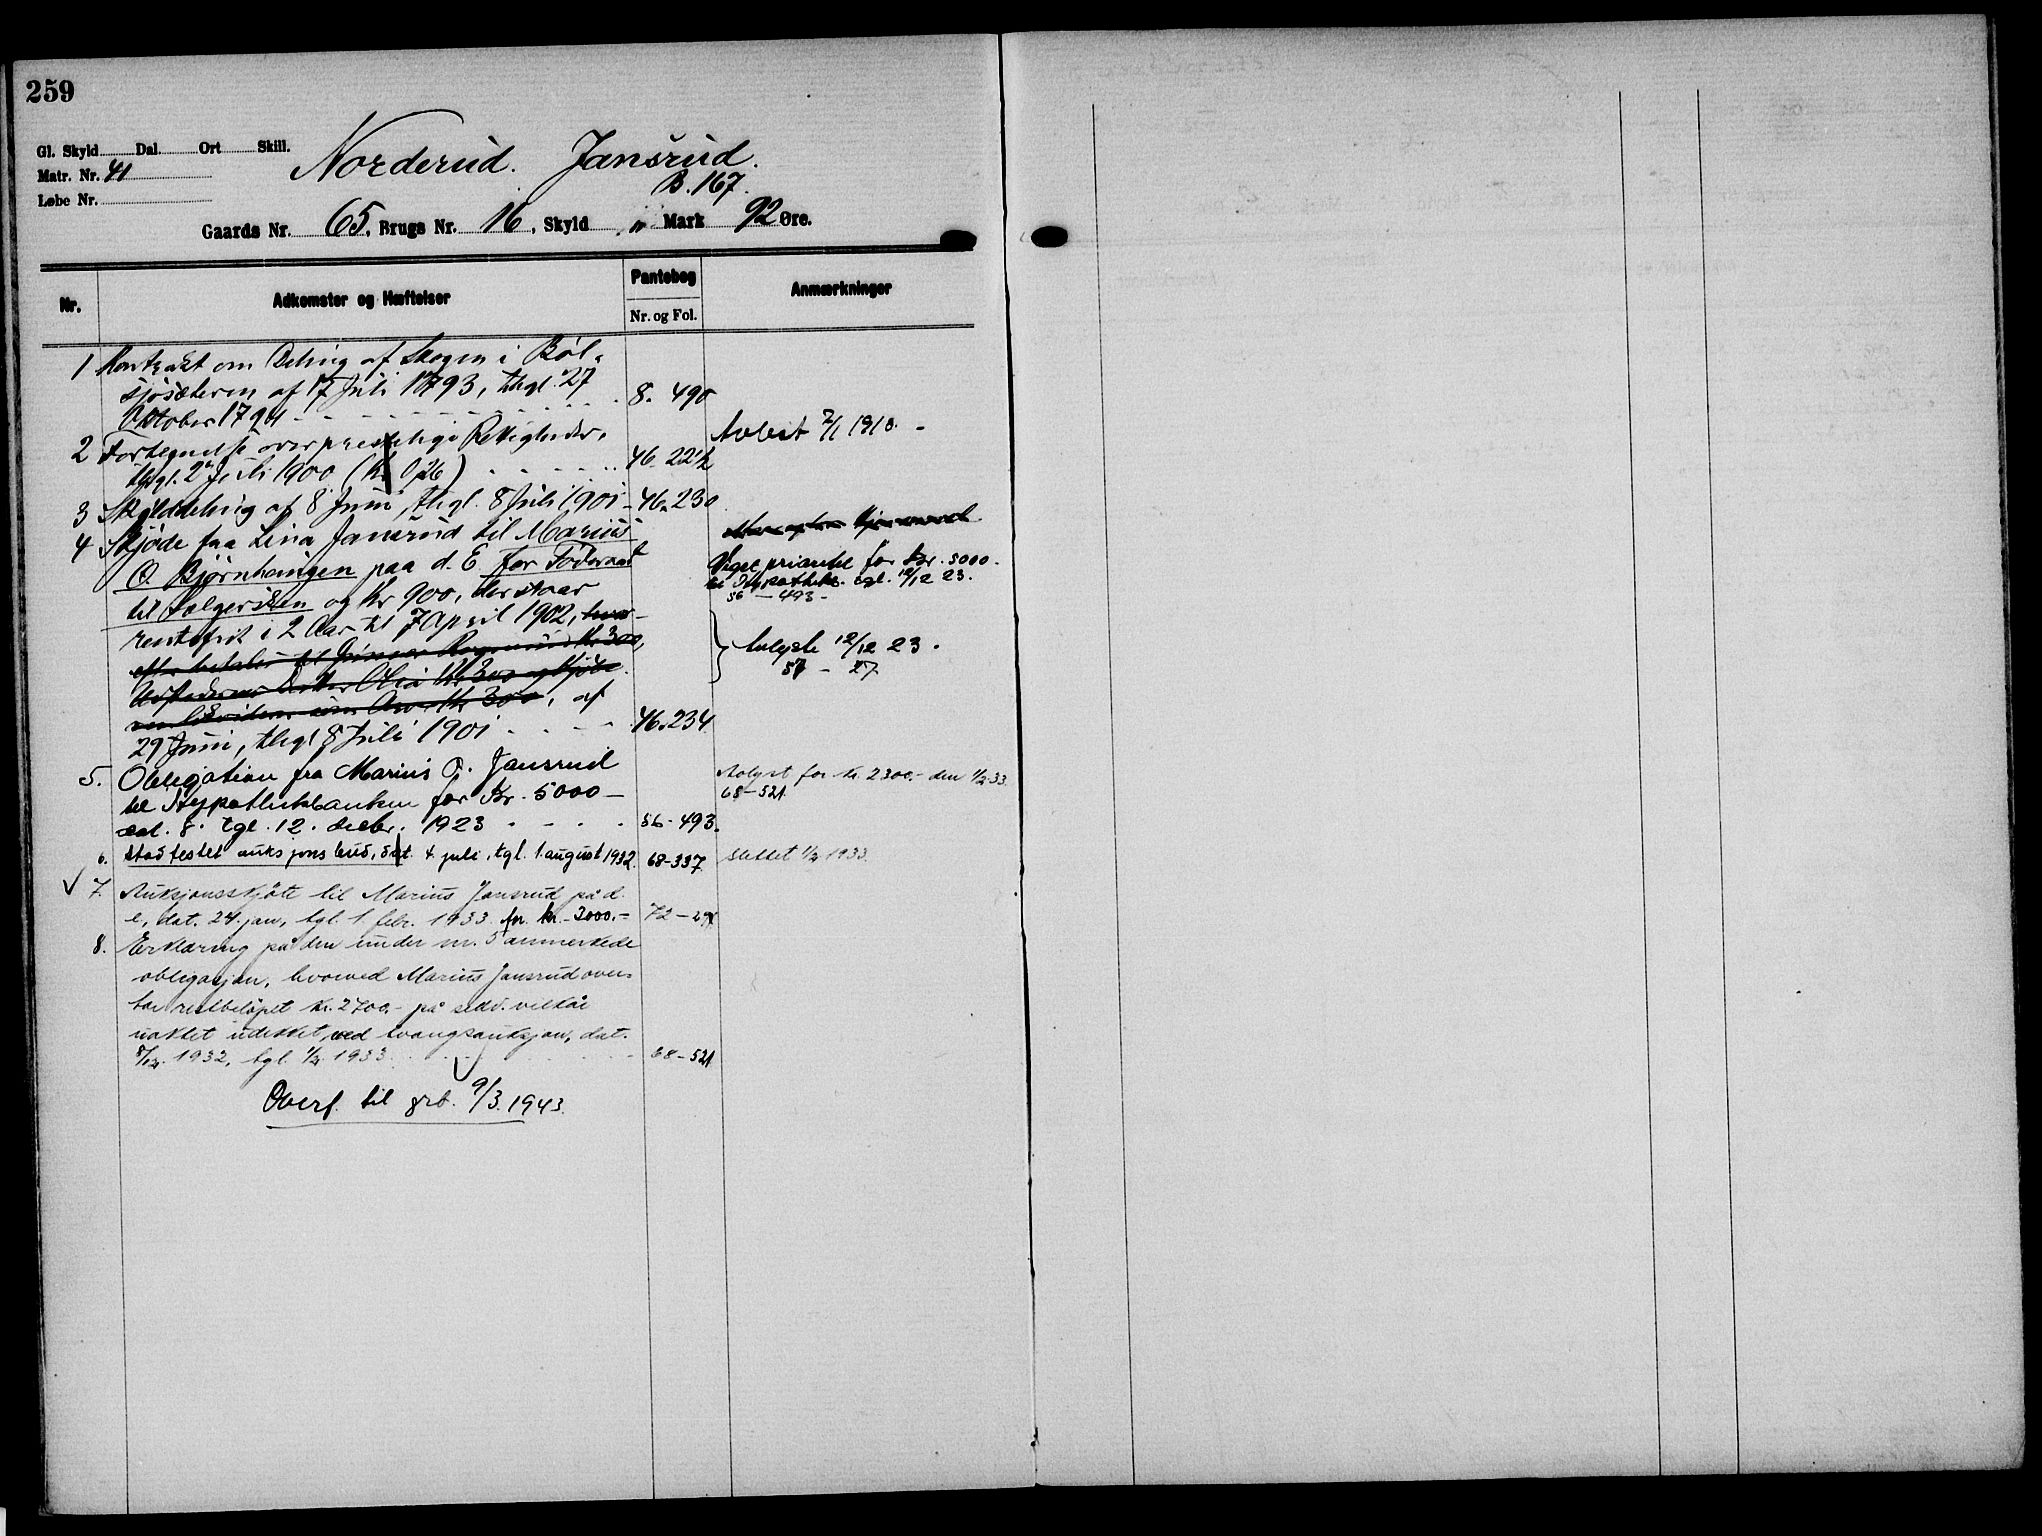 259
Gl. Skyld Dal Ort Skill.
Matr. Nr. 41
Løbe Nr.
Norderud. Jansrud.
B. 167.
Gaards Nr. 65, Brugs Nr. 16, Skyld " Mark 92 Øre.
Nr. Adkomster og Hæftelser Pantebog Anmærkninger
Nr. og Fol.
1 Kontrakt om Deling af Skogen i Böl-
sjösæteren af 17 Juli 1793, thgl. 27
Oktober 1794 8. 490
2 Fortegnelse over præstelige Rettigheder, Avlest 2/1 1910.
thgl. 2 Juli 1900 (Kr. 0,26) 46-221½
3 Skylddeling af 8 Juni, thgl. 8 Juli 1901 - 46. 230
4 Skjøde fra Lina Jansrud til Marius
O. Bjørnhaugen paa d. E. for Föderaad
til Sælgersken og Kr 900, der staar
rentefrit i 2 Aar til 7 April 1902, hvor-
efter betales til Kr 300,
Datter Olia Kr 300 og
som Arv Kr 300, af
29 Juni, thgl 8 Juli 1901 46. 234
Viger prioritet for kr. 5000.
til Hypothekb. tgl. 12/12 23.
56 - 493 -
Avlyste 12/12 23.
57 - 27
5. Obligation fra Marius O. Jansrud
til Hypothekbanken for Kr. 5000 -
dat. 8. tgl. 12. decbr. 1923 56 - 493.
Avlyst for kr. 2300.- den 1/2 33.
68-521
6. Stadfestet auksjonsbud, dat. 4 juli, tgl. 1 august 1932. 68-337 slettet 1/2 1933.
7. Auksjonsskjöte til Marius Jansrud på d.
e, dat. 24 jan, tgl 1 febr. 1933 for kr. 3000.- 72-29
8. Erklæring på den under nr. 5 anmerkede
obligasjon, hvorved Marius Jansrud over-
tar restbelöpet kr. 2700.- på selv. vilkår
uaktet udekket ved tvangsauksjon, dat.
8/12. 1932, tgl. 1/2 1933 68-521
Overf. til grb. 9/3. 1943.